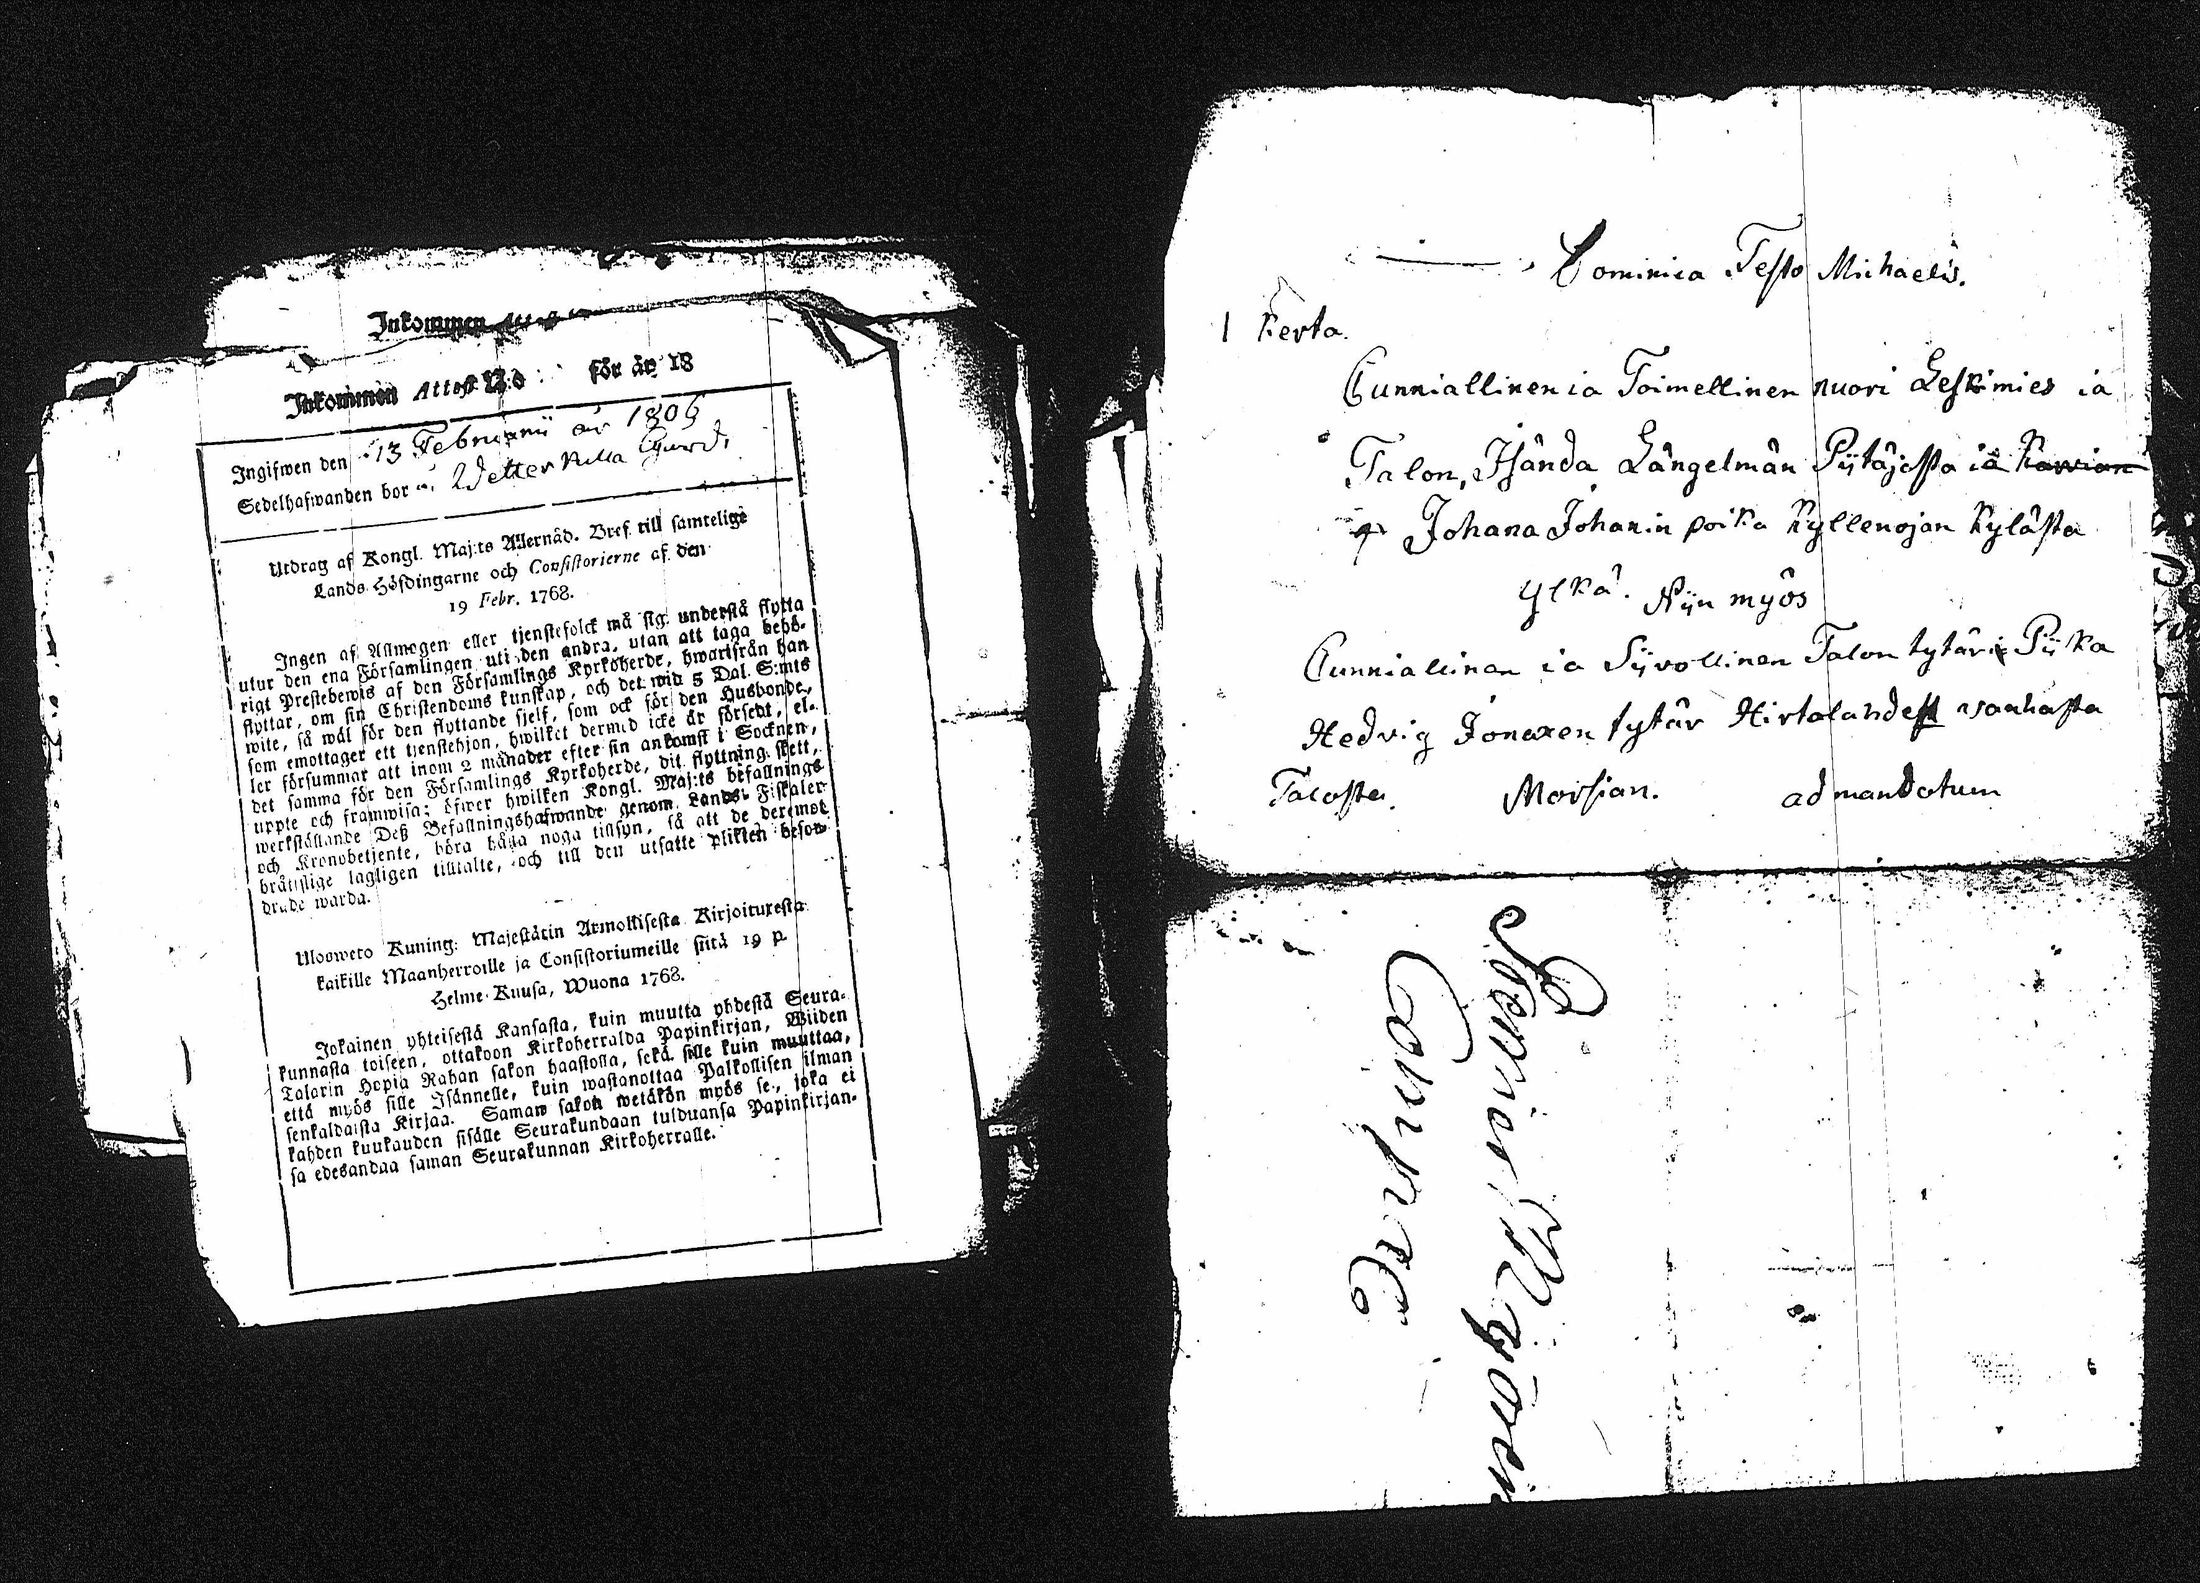 Inkommen
Inkommen Attest N:o för år 18
Ingifwen den 13 Februarii år 1806
Sedelhafwanden bor i Wetterkulla Gård.
Utdrag af Kongl. Maj:ts Allernåd. Bref till samtelige
Lands Höfdingarne och Consistorierne af den
19 Febr. 1768.
Ingen af Allmogen eller tjenstefolck må sig understå flytta
utur den ena Församlingen uti den andra, utan att taga behö-
rigt Prestebewis af den Församlings Kyrkoherde, hwarifrån han
flyttar, om sin Christendoms kunskap, och det wid 5 Dal. S:mts
wite, så wäl för den flyttande sjelf, som ock för den Husbonde,
som emottager ett tjenstehjon, hwilket dermed icke är försedt, el-
ler försummar att inom 2 månader efter sin ankomst i Socknen,
det samma för den Församlings Kyrkoherde, dit flyttning skett,
uppte och framwisa; öfwer hwilken Kongl. Maj:ts befallnings
werkställande Deß Befallningshafwande genom Lands-Fiskaler
och Kronobetjente, böra hålla noga tillsyn, så att de deremot
bråttslige lagligen tilltalte, och till den utsatte plikten befor-
drade warda.
Ulosweto Kuning: Majestätin Armollisesta Kirjoituxesta
kaikille Maanherroille ja Consistoriumeille siitä 19 p.
Helme-Kuusa, Wuona 1768.
Jokainen yhteisestä Kansasta, kuin muutta yhdestä Seura-
kunnasta toiseen, ottakoon Kirkoherralda Papinkirjan, Wiiden
Talarin Hopia Rahan sakon haastolla, sekä sille kuin muuttaa,
että myös sille Isännelle, kuin wastanottaa Palkollisen ilman
senkaldaista Kirjaa. Saman sakon wetäkön myös se, joka ei
kahden kuukauden sisälle Seurakundaan tulduansa Papinkirjan-
sa edesandaa saman Seurakunnan Kirkoherralle.
Dominica Festo Michaelis.
1 Kerta.
Cunniallinen ia Toimellinen nuori Leskimies ia
Talon Isända Längelmän Pytäjästa iä Kawian
Johana Johanin poika Kyllenojan Kylästa
ylkä. Nijn myös
Cunniallinen ia Sijvollinen Talon tytär Pijka
Hedvig Jonaxen tytär Hirtolahdest vanhasta
Talosta. Morsian. ad mandatum